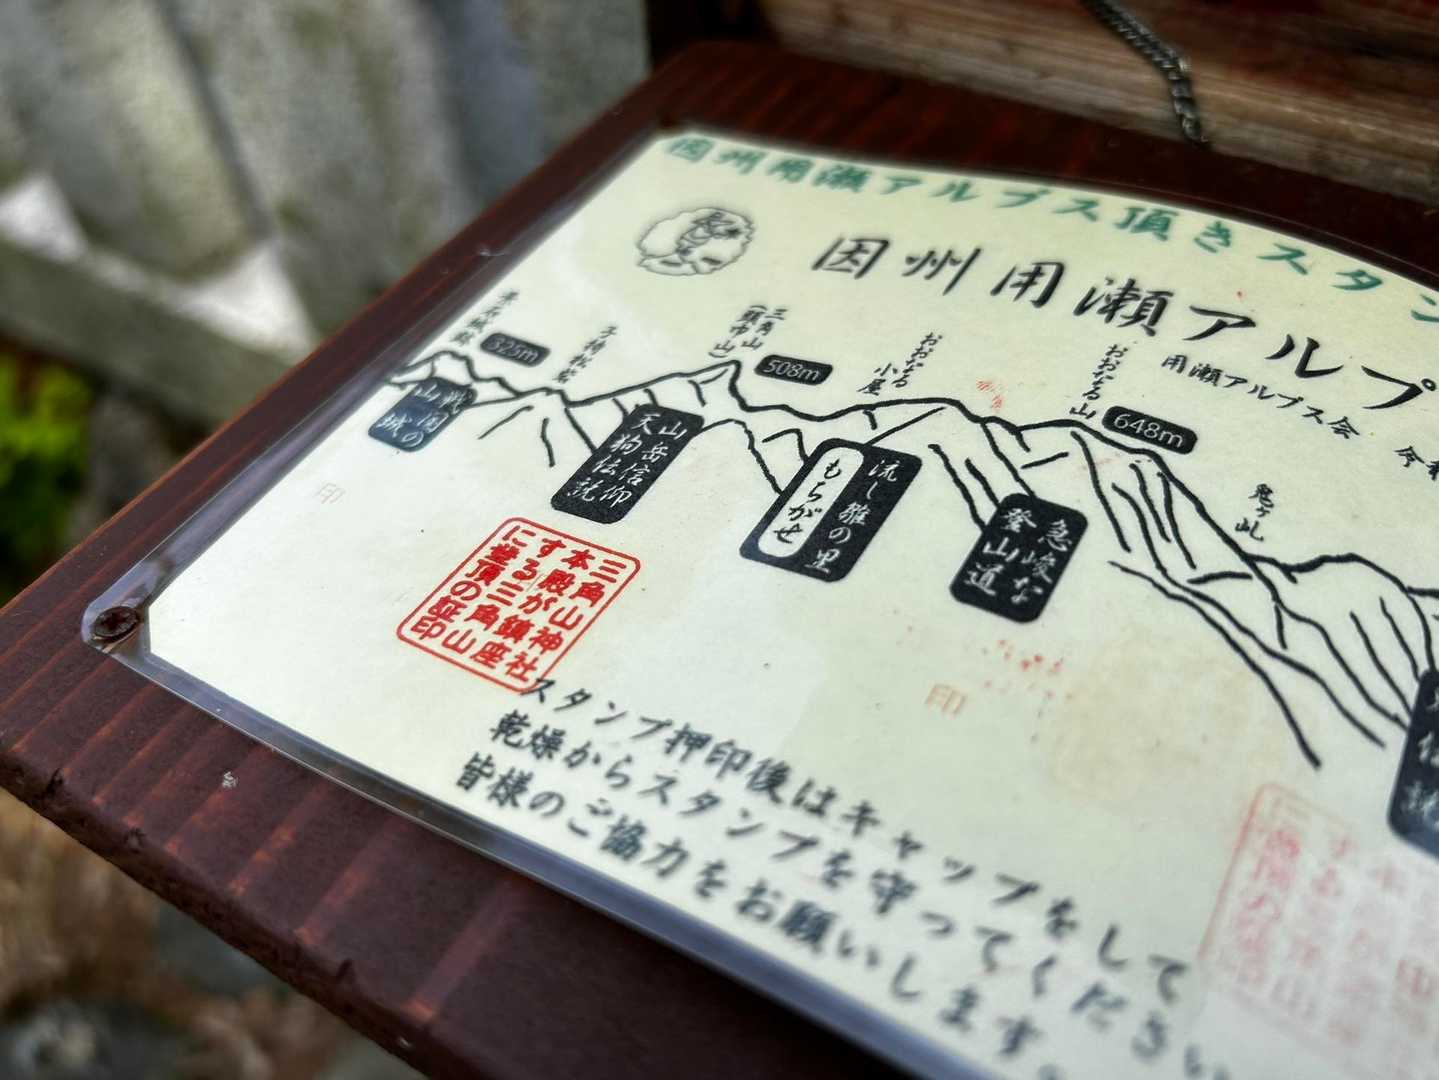 因州用瀬アルプス頂きスタン
因州用瀬アルプ
用瀬アルプス会
325m
子持松岩
三角山
(頭巾山)
508m
おおなる
小屋
おおなる山
648m
戦国の
山城
山岳信仰
天狗伝説
流し雛の里
もちがせ
急峻な
登山道
印
三角山神社
本殿が鎮座
する三角山
に登頂の証印
印
スタンプ押印後はキャップをして
乾燥からスタンプを守ってください
皆様のご協力をお願いします。